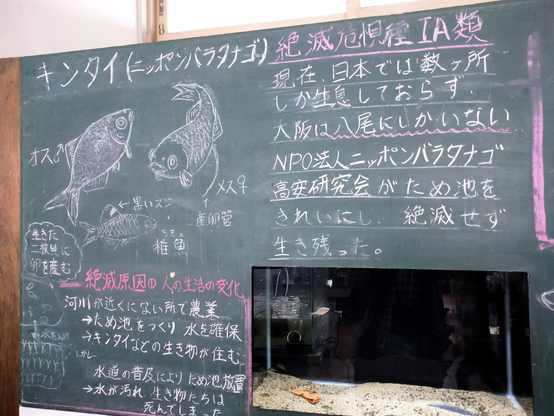 キンタイ(ニッポンバラタナゴ)
オス♂
メス♀
産卵管
←黒いスジ
稚魚
生きた
二枚貝に
卵を産む
絶滅原因① 人の生活の変化
河川が近くにない所で農業
→ため池をつくり 水を確保
→キンタイなどの生き物が住む
しかし
水道の普及により ため池放置
→水が汚れ 生き物たちは
死んでしまった
絶滅危惧種ⅠA類
現在、日本では数ヶ所
しか生息しておらず、
大阪は八尾にしかいない
NPO法人ニッポンバラタナゴ
高安研究会がため池を
きれいにし、絶滅せず
生き残った。